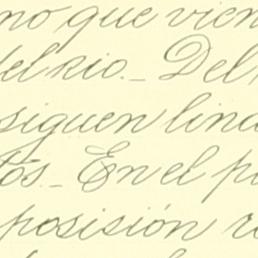 no que vien
del rio._ Del
siguen lind
tos._ En el p
posisión r